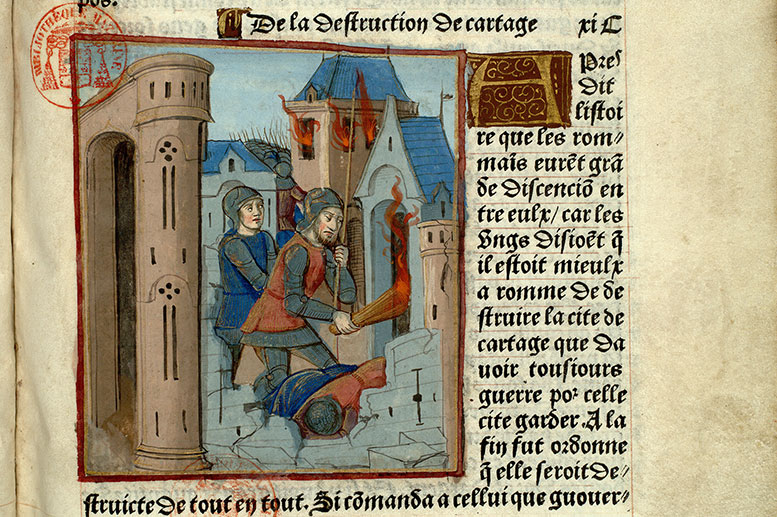 pos.
De la destruction de cartage xi C
Apres
dit
listoi
re que les rom⸗
mais eurēt grā
de discenciō en
tre eulx/ car les
vngs disioēt q̄
il estoit mieulx
a romme de de
struire la cite de
cartage que da
uoir tousiours
guerre por celle
cite garder. A la
fin fut ordonne
q̄ elle seroit de⸗
structe de tout en tout. Si cōmanda a cellui que guouer⸗
BIBLIOTHEQUE